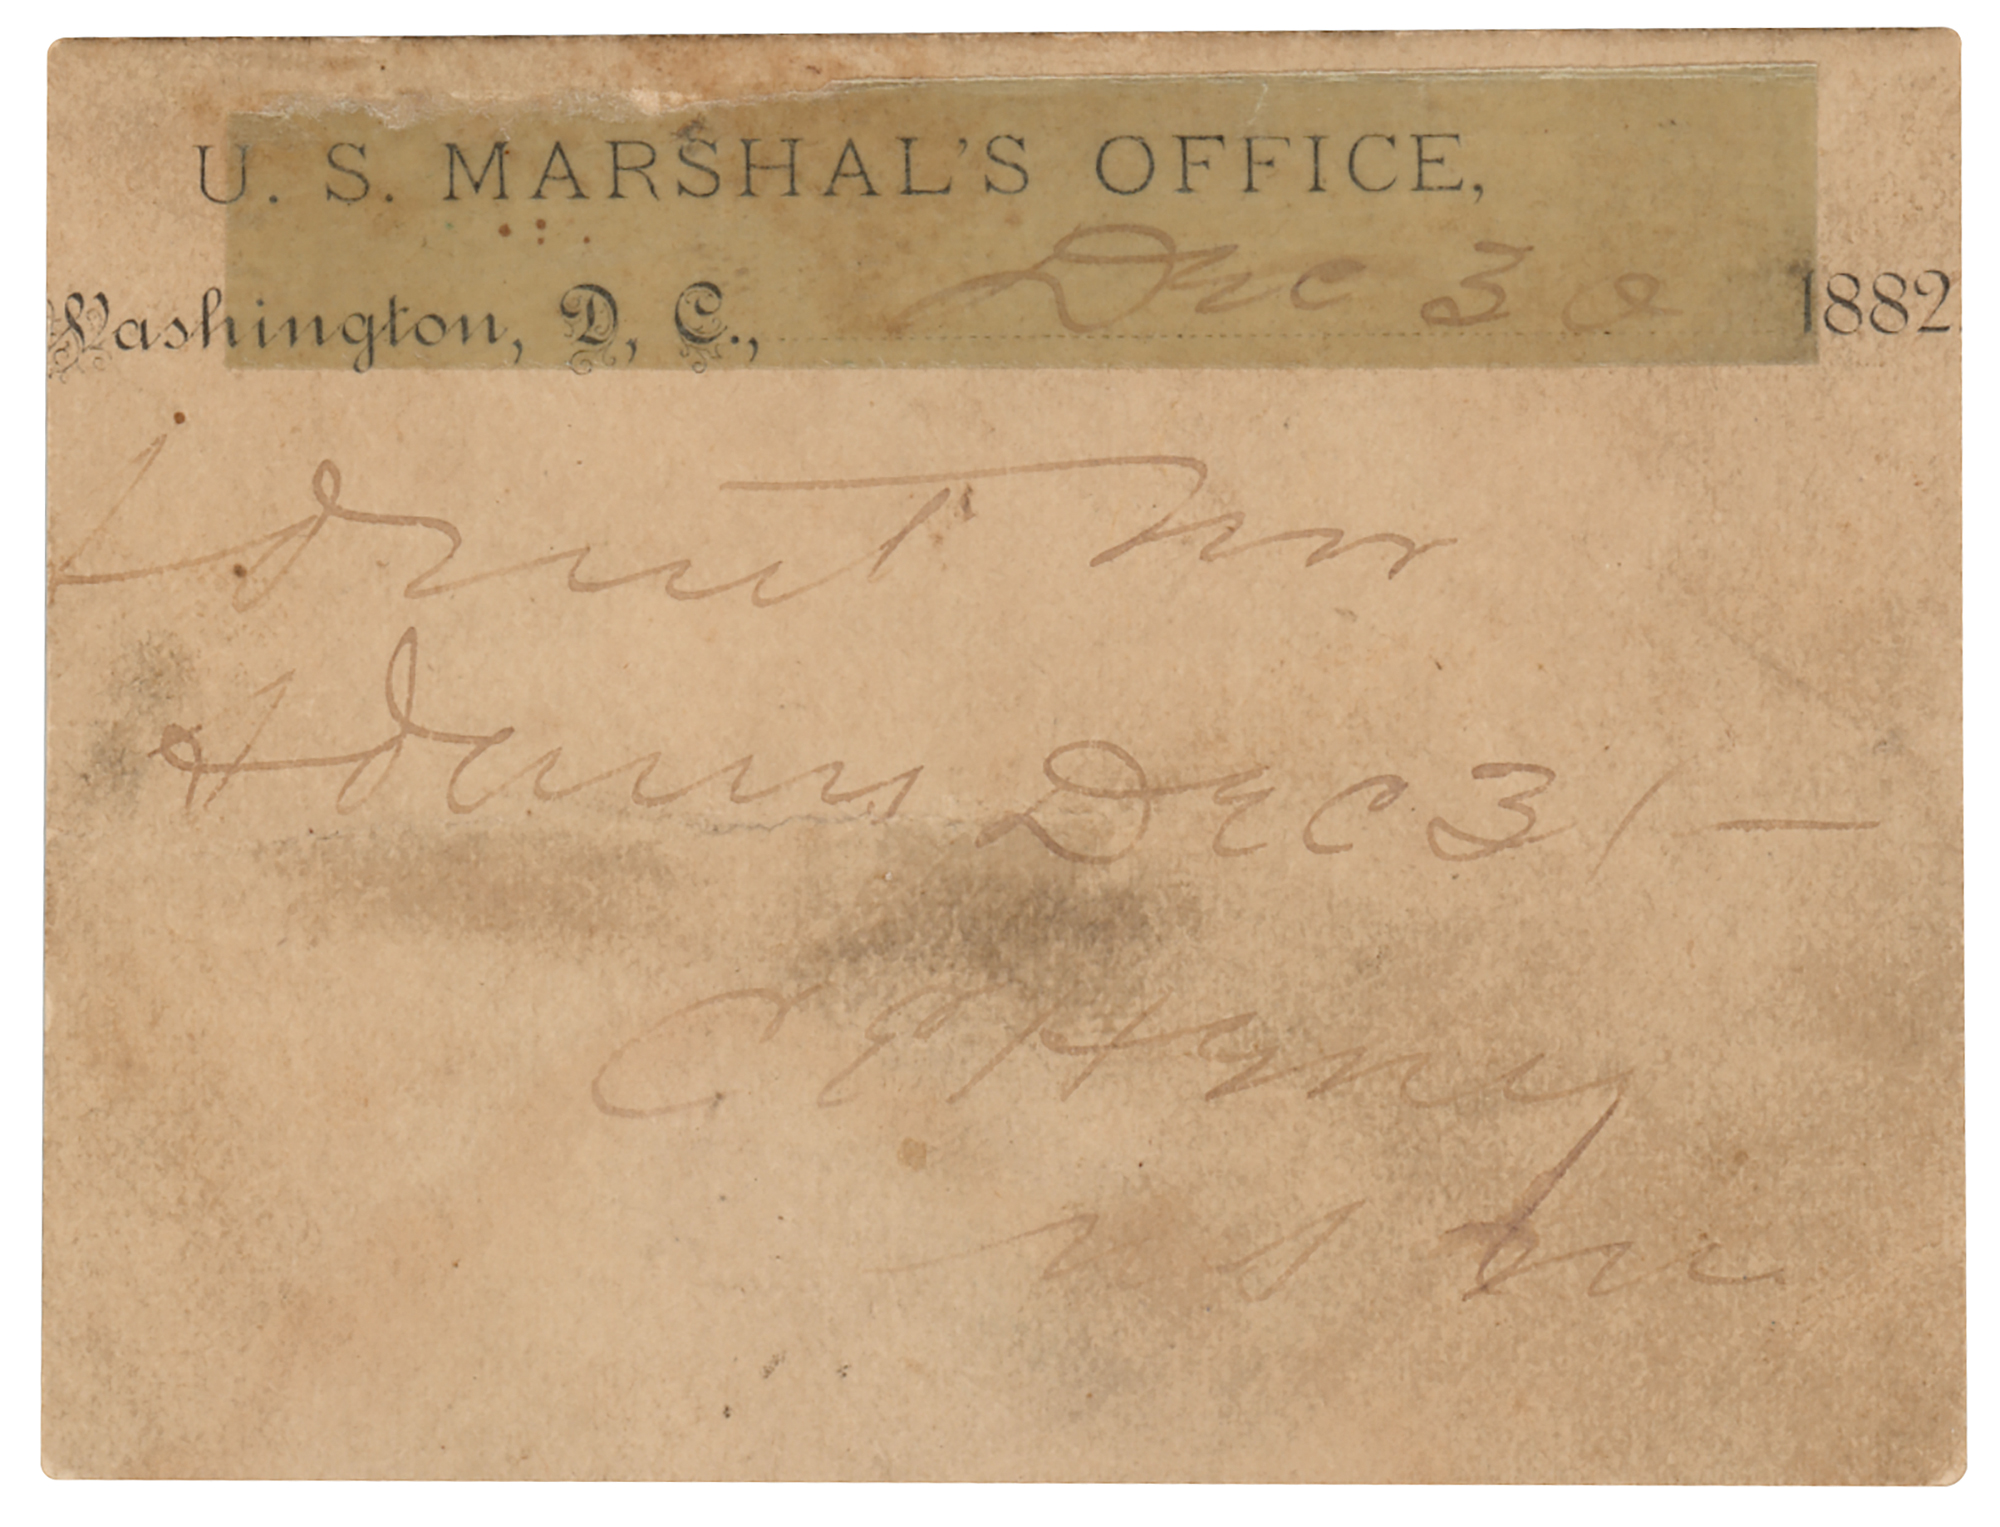 U. S. MARSHAL'S OFFICE,
Washington, D. C., Dec 30 1882.
Admit Mr
Adams Dec 31 —
C E Henry
U S